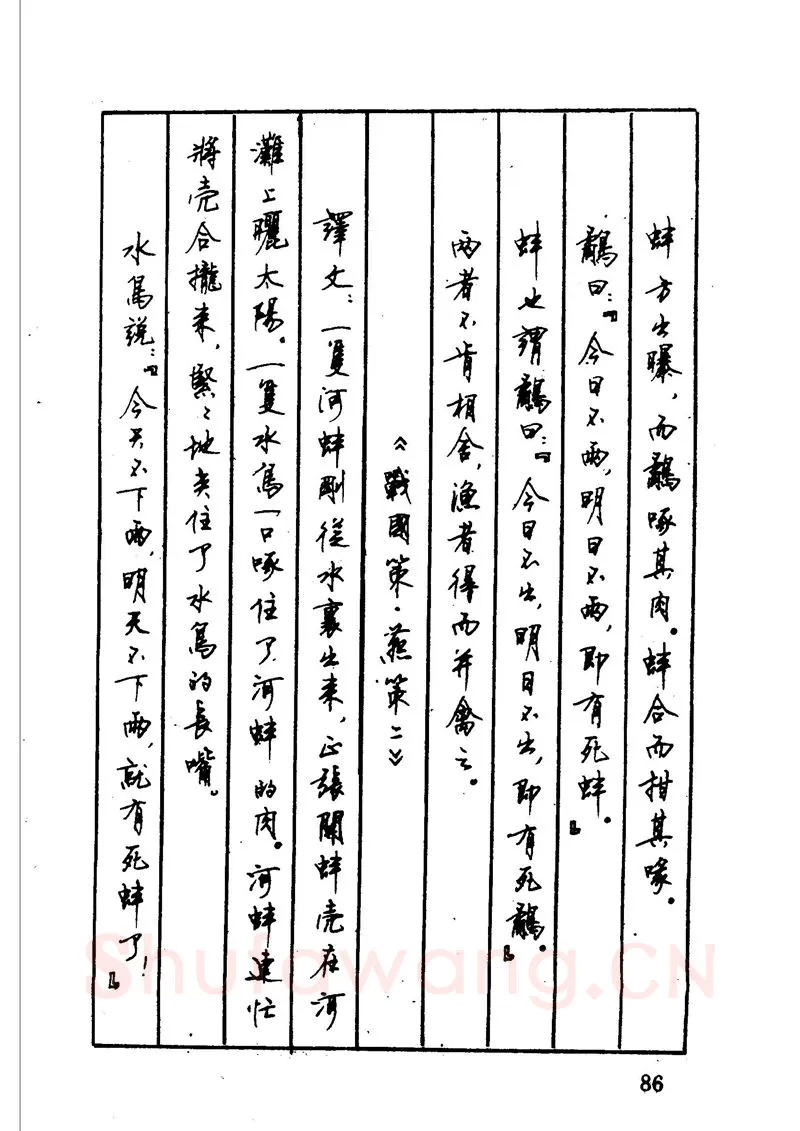 蚌方出曝，而鷸啄其肉。蚌合而拑其喙。
鷸曰：『今日不雨，明日不雨，即有死蚌。』
蚌也謂鷸曰：『今日不出，明日不出，即有死鷸。』
两者不肯相舍，漁者得而并禽之。
《戰國策·燕策二》
譯文：一隻河蚌剛從水裏出来，正張開蚌壳在河
灘上曬太陽。一隻水鳥一口啄住了河蚌的肉。河蚌連忙
將壳合攏来，緊々地夹住了水鳥的長嘴。
水鳥說：『今天不下雨，明天不下雨，就有死蚌了！』
Shufawang.CN
86